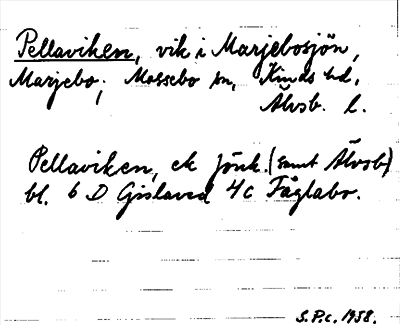 Pellaviken, vik i Marjebosjön,
Marjebo; Mossebo sn, Kinds hd,
Älvsb. l.
Pellaviken, ek Jönk. (samt Älvsb)
bl. 6 D Gislaved 4c Fåglabo.
S.P.C. 1958.